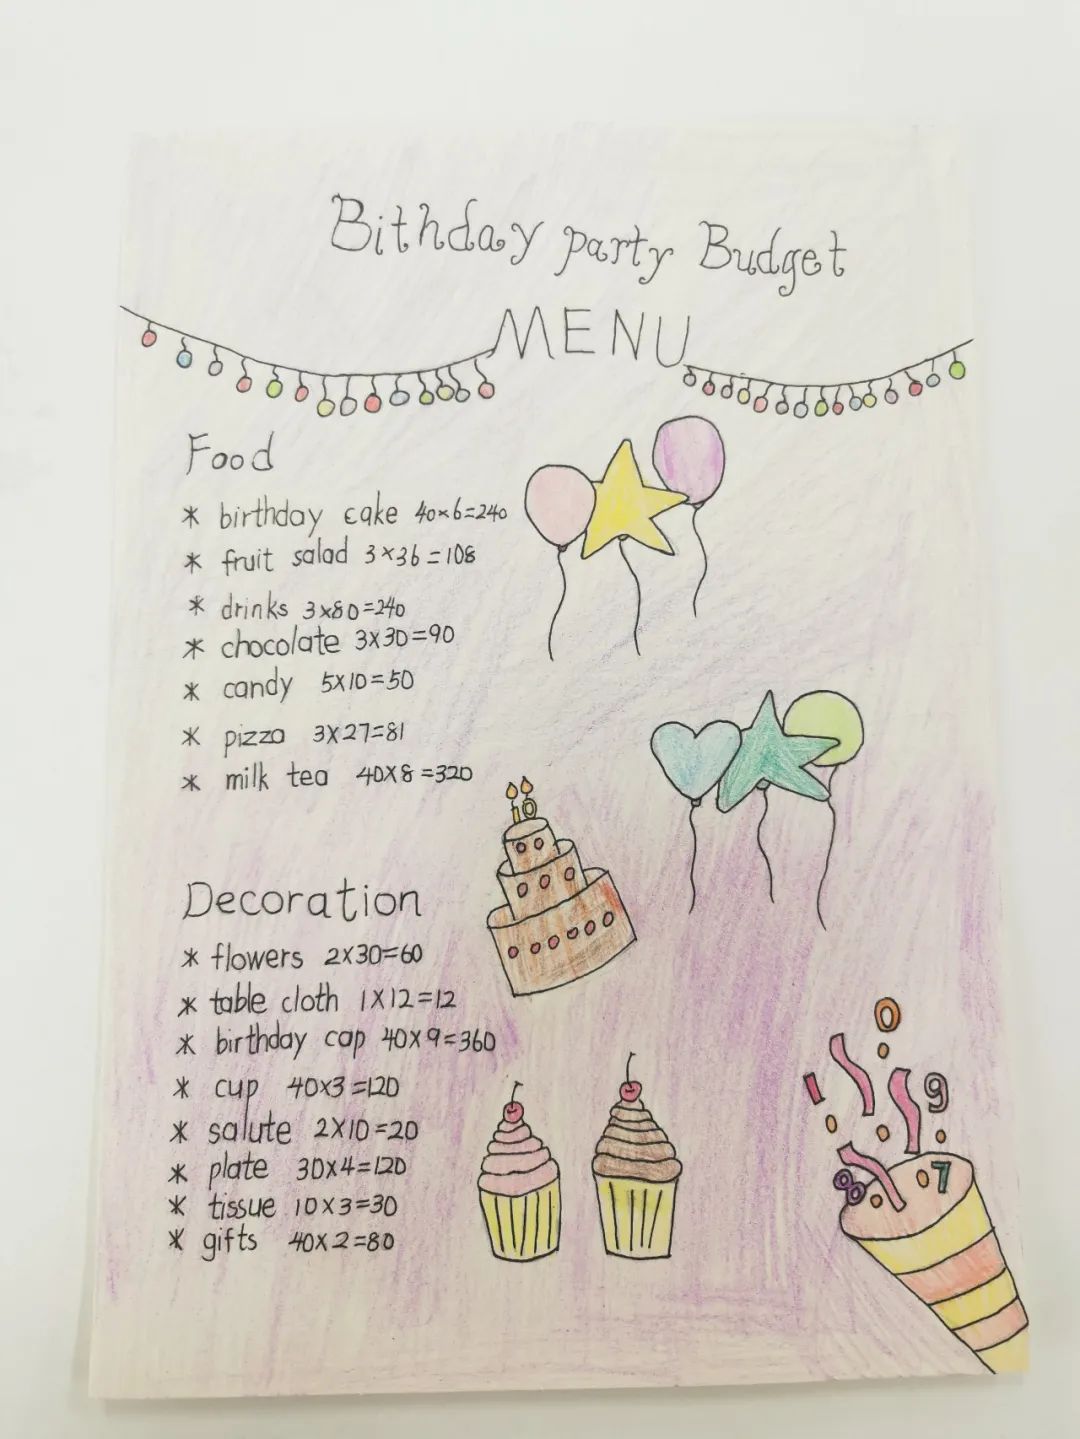 Bithday party Budget
MENU
Food
* birthday cake 40×6=240
* fruit salad 3×36=108
* drinks 3×80=240
* chocolate 3×30=90
* candy 5×10=50
* pizza 3×27=81
* milk tea 40×8=320
10
Decoration
* flowers 2×30=60
* table cloth 1×12=12
* birthday cap 40×9=360
* cup 40×3=120
* salute 2×10=20
* plate 30×4=120
* tissue 10×3=30
* gifts 40×2=80
0
1
9
8
7